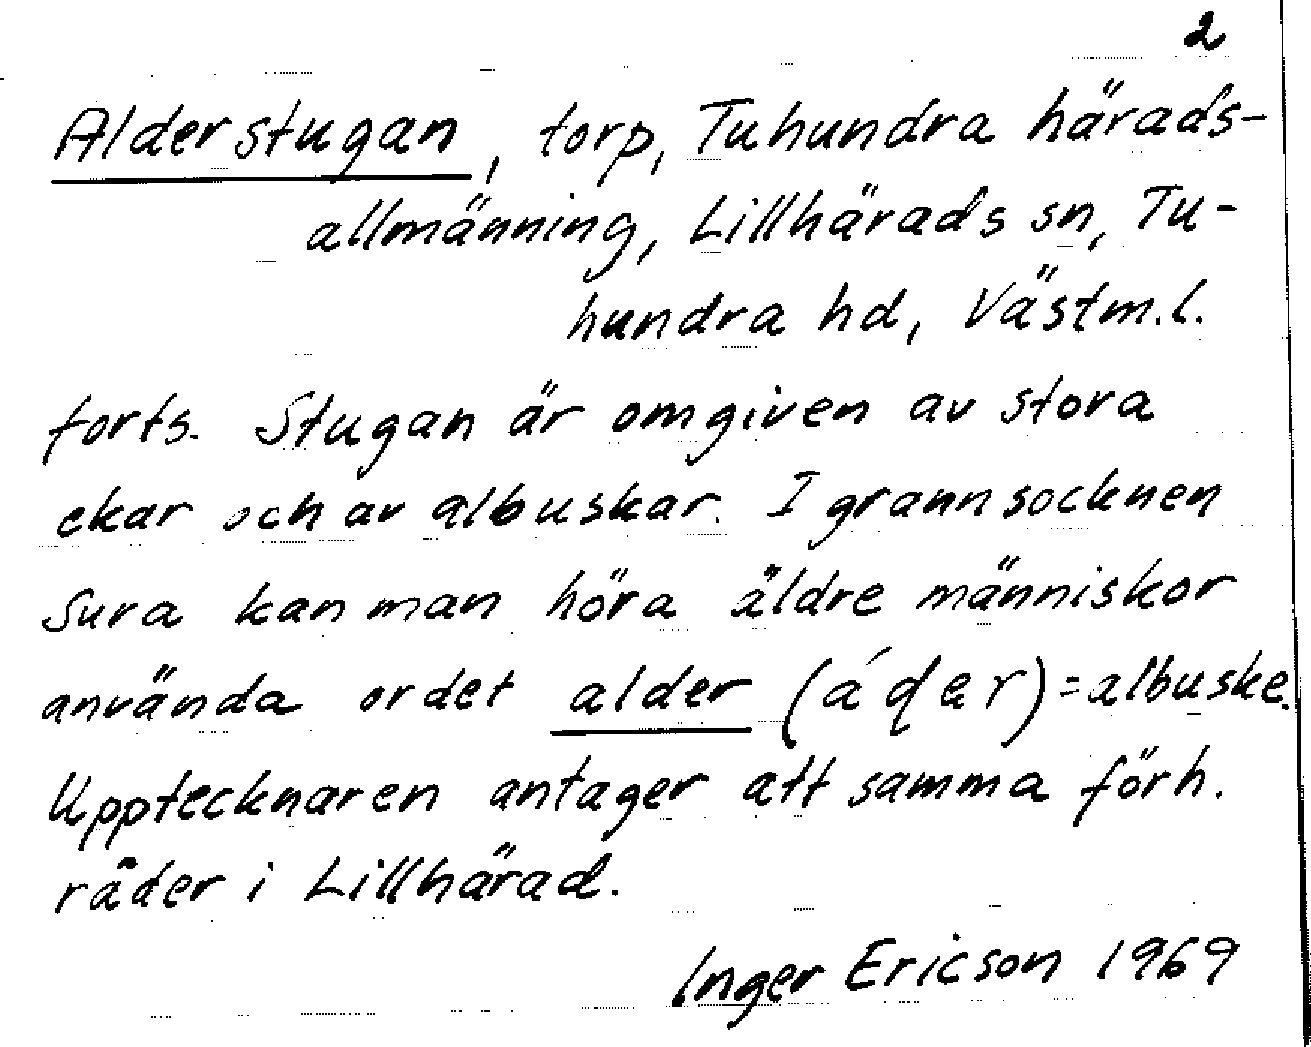 2
Alderstugan, torp, Tuhundra härads-
allmänning, Lillhärads sn, Tu-
hundra hd, Västm.l.
forts. Stugan är omgiven av stora
ekar och av albuskar. I grannsocknen
Sura kan man höra äldre människor
använda ordet alder (áder) = albuske.
Upptecknaren antager att samma förh.
råder i Lillhärad.
Inger Ericson 1969